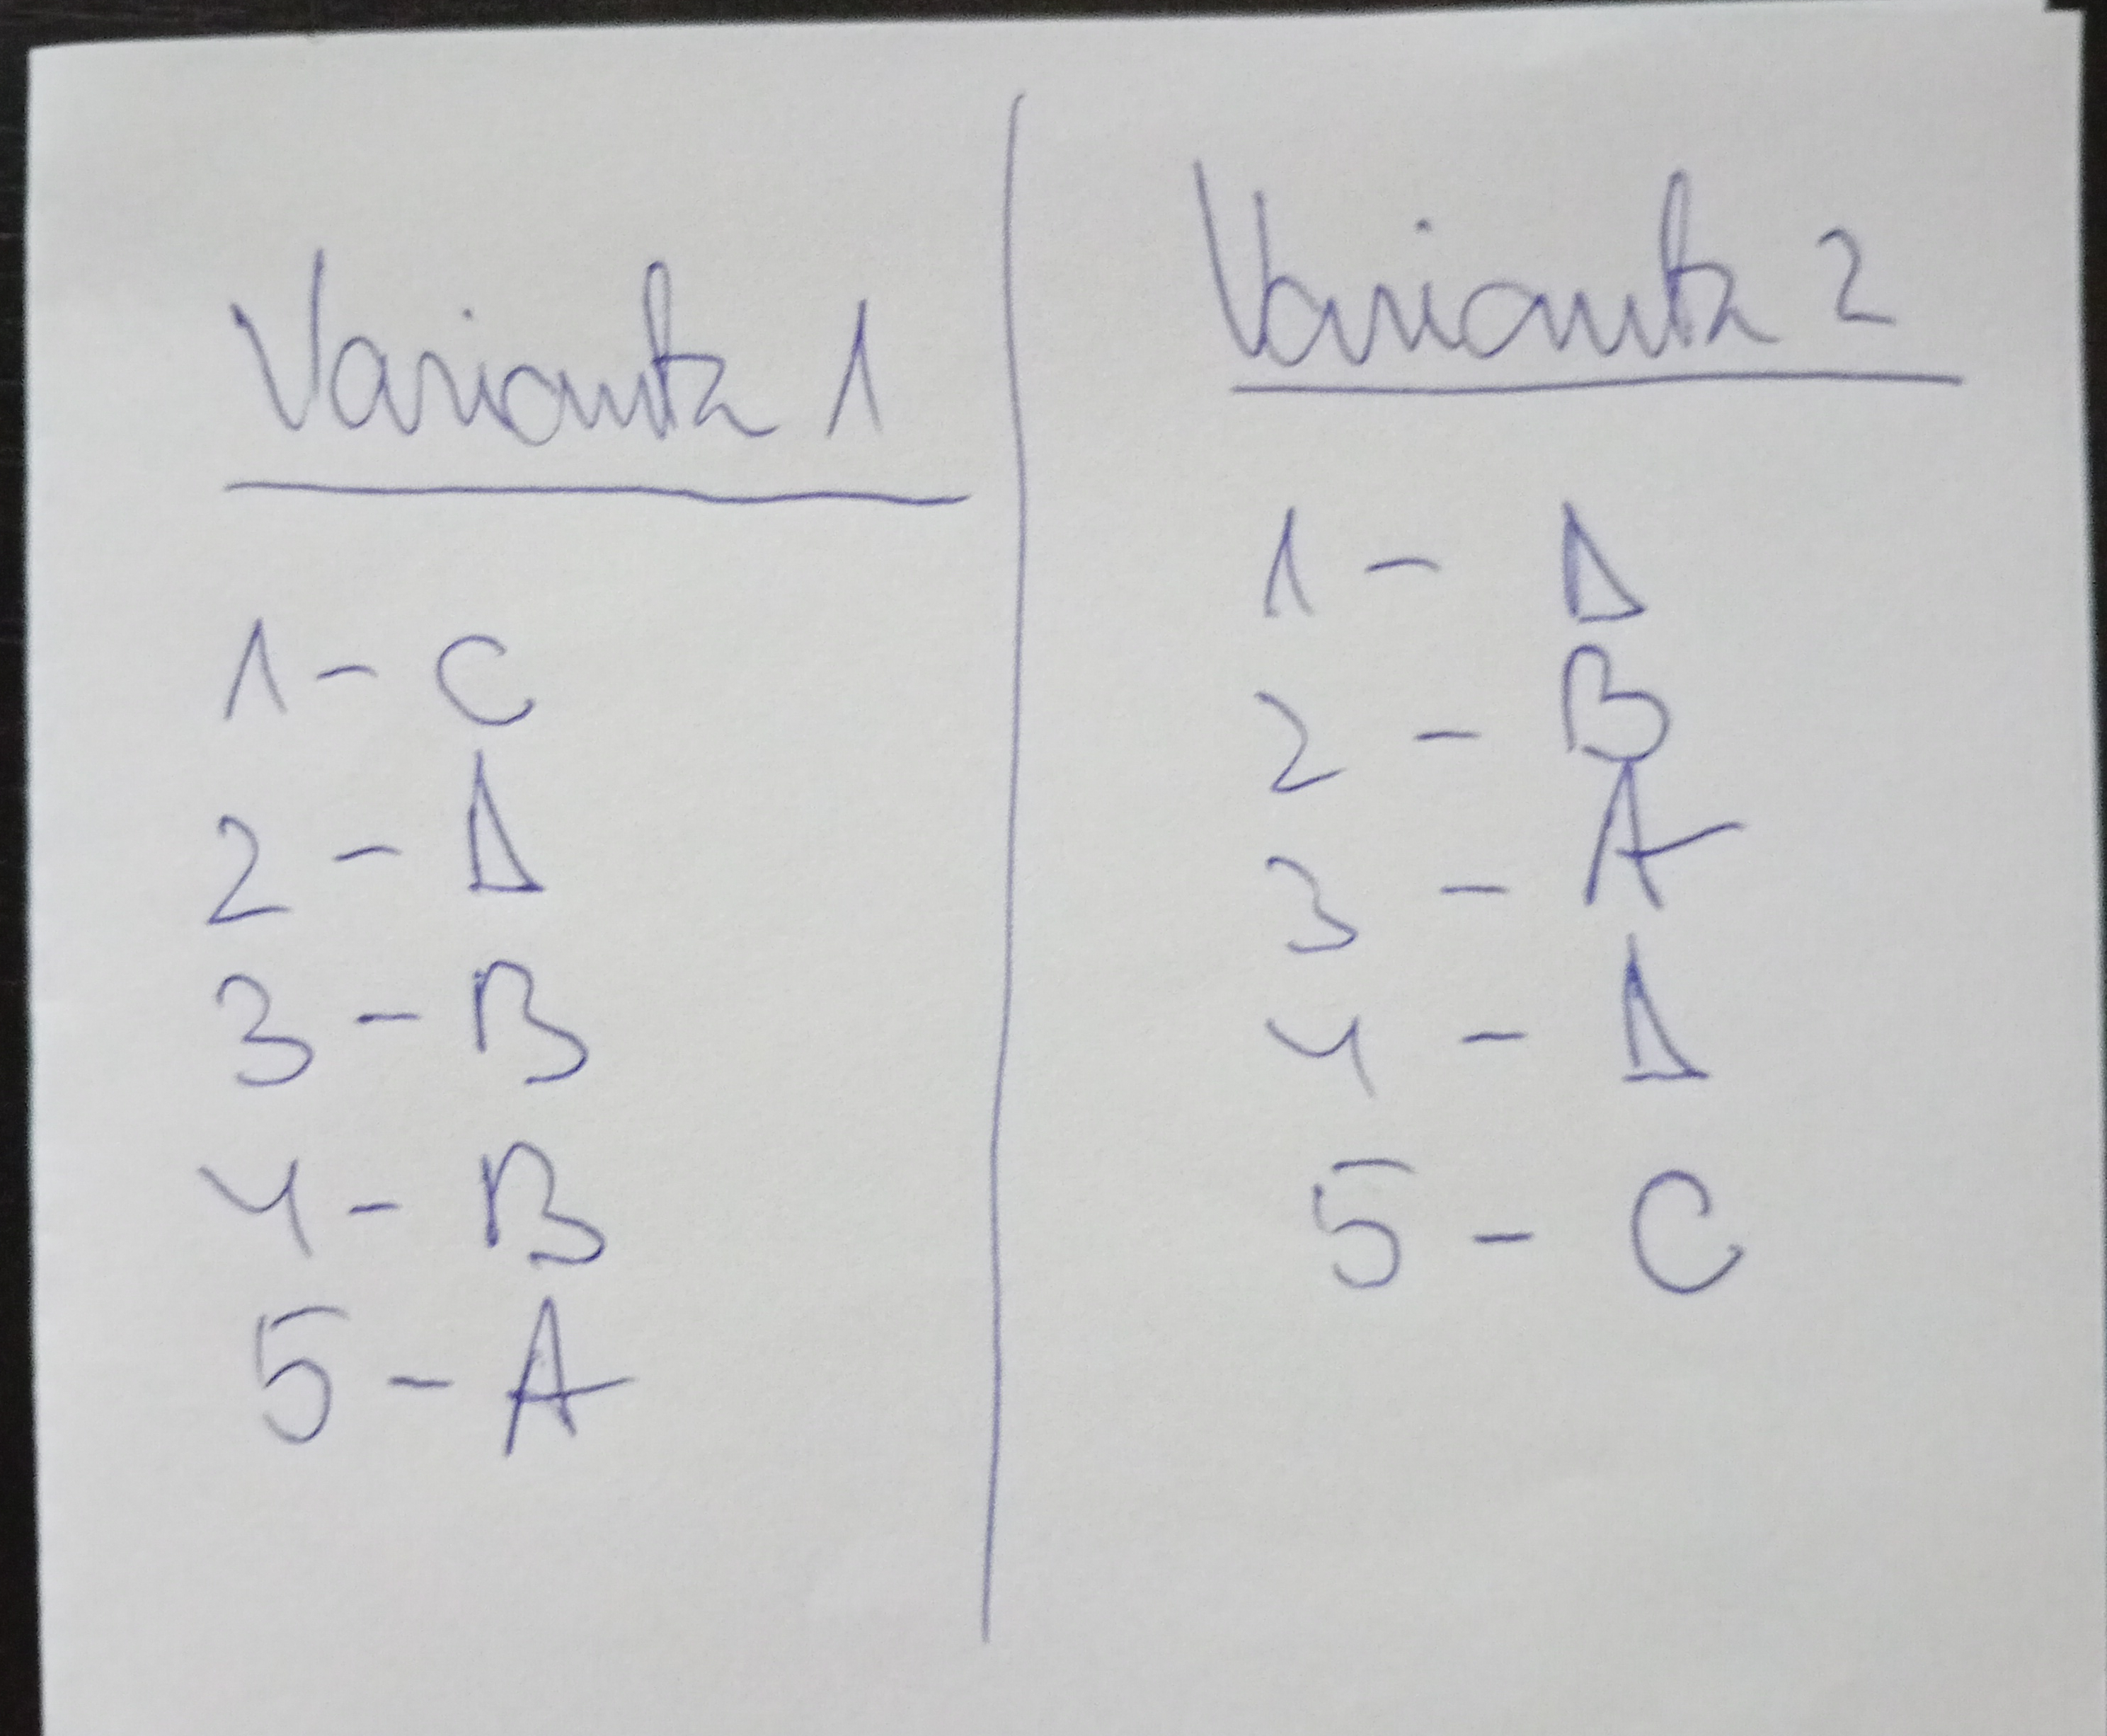 Varianta 1
1 - C
2 - D
3 - B
4 - B
5 - A
Varianta 2
1 - D
2 - B
3 - A
4 - D
5 - C